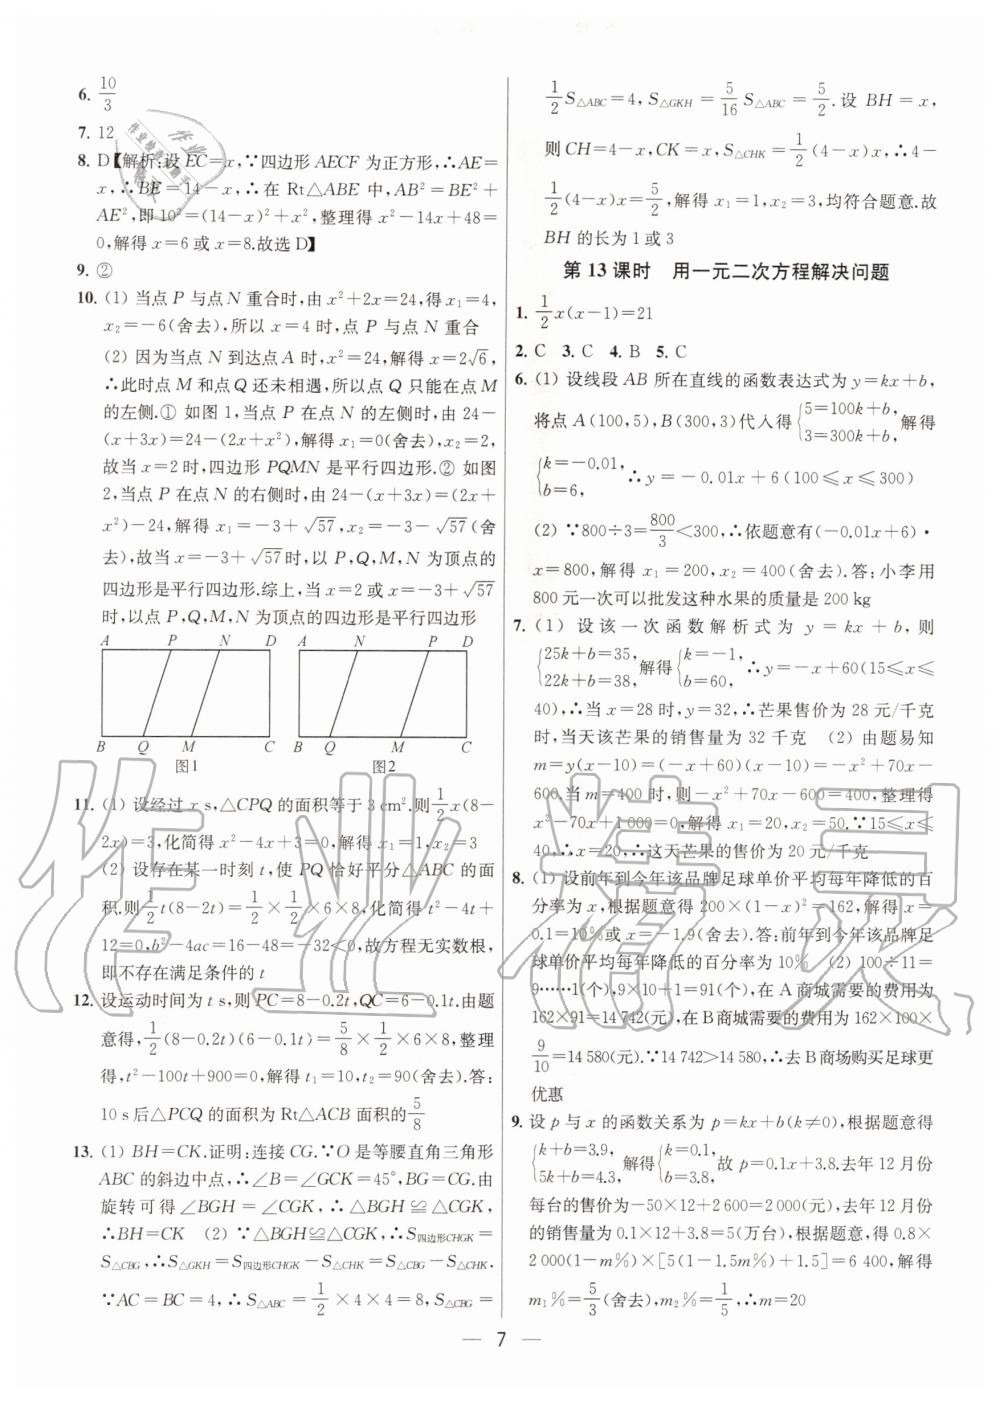 6. 10/3
7. 12
8. D【解析:设 EC=x,∵四边形 AECF 为正方形,∴AE=
x,∴BE=14-x,∴在 Rt△ABE 中,AB²=BE²+
AE²,即 10²=(14-x)²+x²,整理得 x²-14x+48=
0,解得 x=6 或 x=8.故选 D】
9. ②
10. (1) 当点 P 与点 N 重合时,由 x²+2x=24,得 x₁=4,
x₂=-6(舍去),所以 x=4 时,点 P 与点 N 重合
(2) 因为当点 N 到达点 A 时,x²=24,解得 x=2√6,
∴此时点 M 和点 Q 还未相遇,所以点 Q 只能在点 M
的左侧.① 如图 1,当点 P 在点 N 的左侧时,由 24-
(x+3x)=24-(2x+x²),解得 x₁=0(舍去),x₂=2,
故当 x=2 时,四边形 PQMN 是平行四边形.② 如图
2,当点 P 在点 N 的右侧时,由 24-(x+3x)=(2x+
x²)-24,解得 x₁=-3+√57,x₂=-3-√57(舍
去),故当 x=-3+√57时,以 P,Q,M,N 为顶点的
四边形是平行四边形.综上,当 x=2 或 x=-3+√57
时,以点 P,Q,M,N 为顶点的四边形是平行四边形
A P N D A N P D
B Q M C B Q M C
图1 图2
11. (1) 设经过 x s,△CPQ 的面积等于 3 cm².则 1/2 x(8-
2x)=3,化简得 x²-4x+3=0,解得 x₁=1,x₂=3
(2) 设存在某一时刻 t,使 PQ 恰好平分△ABC 的面
积.则 1/2 t(8-2t)=1/2×1/2×6×8,化简得 t²-4t+
12=0,b²-4ac=16-48=-32<0,故方程无实数根,
即不存在满足条件的 t
12. 设运动时间为 t s,则 PC=8-0.2t,QC=6-0.1t.由题
意得,1/2(8-0.2t)(6-0.1t)=5/8×1/2×6×8,整理
得,t²-100t+900=0,解得 t₁=10,t₂=90(舍去).答:
10 s后△PCQ 的面积为 Rt△ACB 面积的 5/8
13. (1) BH=CK.证明:连接 CG.∵O 是等腰直角三角形
ABC 的斜边中点,∴∠B=∠GCK=45°,BG=CG.由
旋转可得∠BGH=∠CGK,∴△BGH≌△CGK,
∴BH=CK (2) ∵△BGH≌△CGK,∴S四边形CHGK=
S△CBG,∴S△GKH=S四边形CHGK-S△CHK=S△CBG-S△CHK.
∵AC=BC=4,∴S△ABC=1/2×4×4=8,S△CBG=
1/2 S△ABC=4,S△GKH=5/16 S△ABC=5/2.设 BH=x,
则 CH=4-x,CK=x,S△CHK=1/2(4-x)x,∴4-
1/2(4-x)x=5/2,解得 x₁=1,x₂=3,均符合题意.故
BH 的长为 1 或 3
第 13 课时 用一元二次方程解决问题
1. 1/2 x(x-1)=21
2. C 3. C 4. B 5. C
6. (1) 设线段 AB 所在直线的函数表达式为 y=kx+b,
将点 A(100,5),B(300,3)代入得{5=100k+b, 3=300k+b,解得
{k=-0.01, b=6, ∴y=-0.01x+6(100≤x≤300)
(2) ∵800÷3=800/3<300,∴依题意有(-0.01x+6)·
x=800,解得 x₁=200,x₂=400(舍去).答:小李用
800 元一次可以批发这种水果的质量是 200 kg
7. (1) 设该一次函数解析式为 y=kx+b,则
{25k+b=35, 22k+b=38,解得{k=-1, b=60, ∴y=-x+60(15≤x≤
40),∴当 x=28 时,y=32,∴芒果售价为 28 元/千克
时,当天该芒果的销售量为 32 千克 (2) 由题易知
m=y(x-10)=(-x+60)(x-10)=-x²+70x-
600,当 m=400 时,则-x²+70x-600=400,整理得
x²-70x+1 000=0,解得 x₁=20,x₂=50.∵15≤x≤
40,∴x=20,∴这天芒果的售价为 20 元/千克
8. (1) 设前年到今年该品牌足球单价平均每年降低的百
分率为 x,根据题意得 200×(1-x)²=162,解得 x=
0.1=10%或 x=-1.9(舍去).答:前年到今年该品牌足
球单价平均每年降低的百分率为 10% (2) 100÷11=
9……1(个),9×10+1=91(个),在 A 商城需要的费用为
162×91=14 742(元),在 B 商城需要的费用为 162×100×
9/10=14 580(元).∵14 742>14 580,∴去 B 商场购买足球更
优惠
9. 设 p 与 x 的函数关系为 p=kx+b(k≠0),根据题意得
{k+b=3.9, 5k+b=4.3,解得{k=0.1, b=3.8,故 p=0.1x+3.8.去年 12 月份
每台的售价为-50×12+2 600=2 000(元),去年 12 月份
的销售量为 0.1×12+3.8=5(万台),根据题意,得 0.8×
2 000(1-m%)×[5(1-1.5m%)+1.5]=6 400,解得
m₁%=5/3(舍去),m₂%=1/5,∴m=20
— 7 —
作业精灵